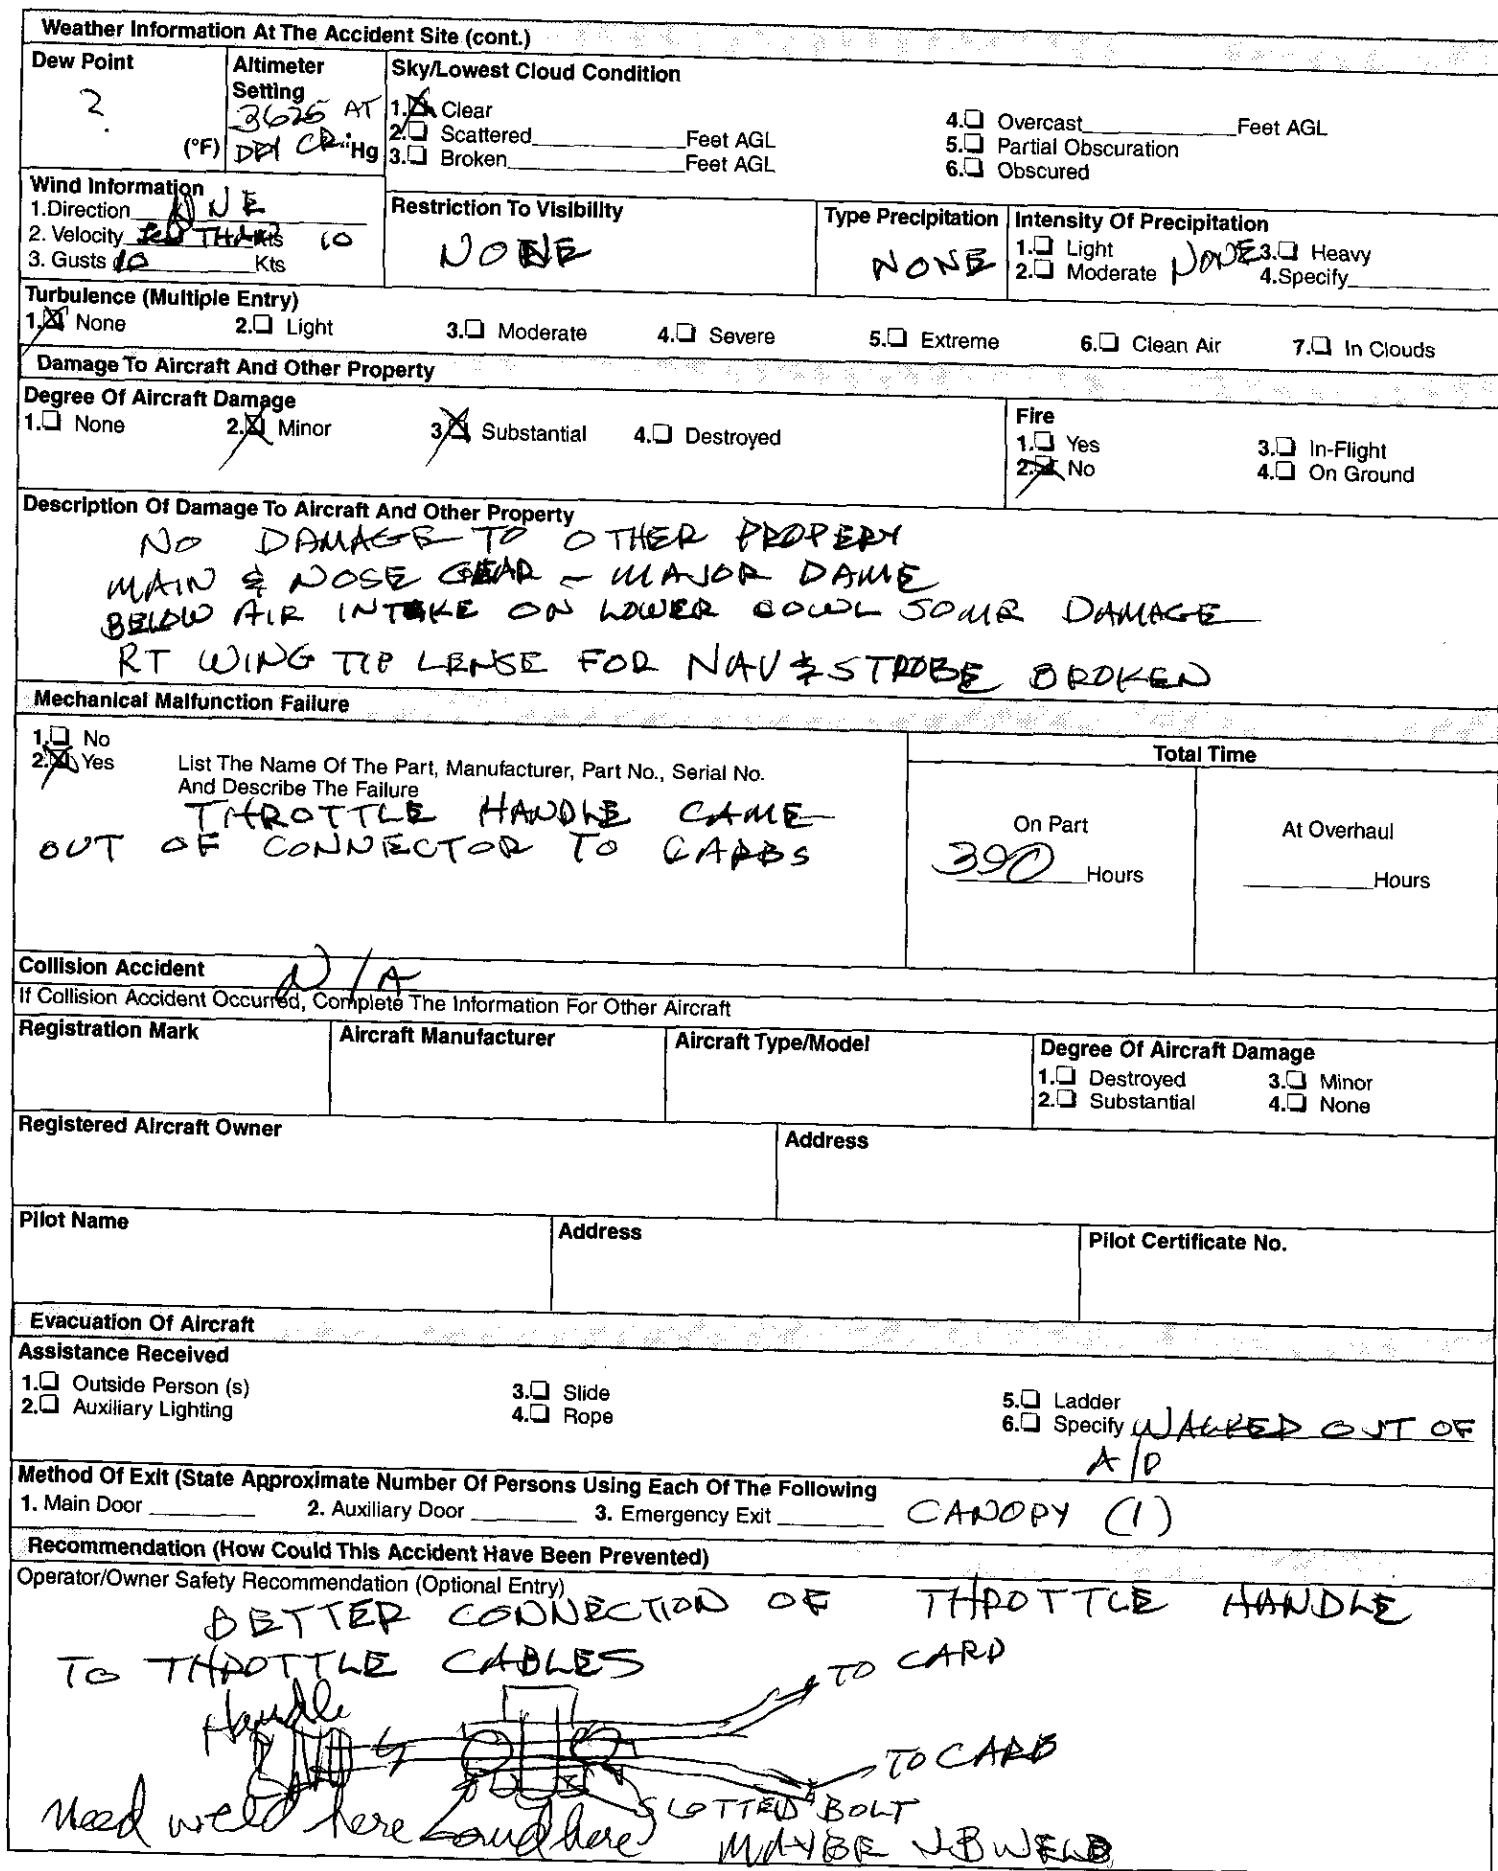 Weather Information At The Accident Site (cont.)
Dew Point
?
(°F)
Altimeter
Setting
3625 AT
"Hg
Sky/Lowest Cloud Condition
1. Clear
2. Scattered Feet AGL
3. Broken Feet AGL
4. Overcast Feet AGL
5. Partial Obscuration
6. Obscured
Wind Information
1.Direction NE
2. Velocity THAN Kts 10
3. Gusts 10 Kts
Restriction To Visibility
NONE
Type Precipitation
NONE
Intensity Of Precipitation
1. Light
2. Moderate NONE
3. Heavy
4.Specify
Turbulence (Multiple Entry)
1. None 2. Light 3. Moderate 4. Severe 5. Extreme 6. Clean Air 7. In Clouds
Damage To Aircraft And Other Property
Degree Of Aircraft Damage
1. None 2. Minor 3. Substantial 4. Destroyed
Fire
1. Yes
2. No
3. In-Flight
4. On Ground
Description Of Damage To Aircraft And Other Property
NO DAMAGE TO OTHER PROPERY
MAIN & NOSE GEAR - MAJOR DAME
BELOW AIR INTAKE ON LOWER COWL SOME DAMAGE
RT WING TIP LENSE FOR NAV & STROBE BROKEN
Mechanical Malfunction Failure
1. No
2. Yes
List The Name Of The Part, Manufacturer, Part No., Serial No.
And Describe The Failure
THROTTLE HANDLE CAME
OUT OF CONNECTOR TO CARBS
Total Time
On Part
390 Hours
At Overhaul
Hours
Collision Accident N/A
If Collision Accident Occurred, Complete The Information For Other Aircraft
Registration Mark
Aircraft Manufacturer
Aircraft Type/Model
Degree Of Aircraft Damage
1. Destroyed 3. Minor
2. Substantial 4. None
Registered Aircraft Owner
Address
Pilot Name
Address
Pilot Certificate No.
Evacuation Of Aircraft
Assistance Received
1. Outside Person (s)
2. Auxiliary Lighting
3. Slide
4. Rope
5. Ladder
6. Specify WALKED OUT OF
Method Of Exit (State Approximate Number Of Persons Using Each Of The Following
1. Main Door 2. Auxiliary Door 3. Emergency Exit CANOPY (1)
Recommendation (How Could This Accident Have Been Prevented)
Operator/Owner Safety Recommendation (Optional Entry)
BETTER CONNECTION OF THROTTLE HANDLE
TO THROTTLE CABLES
TO CARB
Handle
TO CARB
SLOTTED BOLT
Need weld here and here
MAYBE JB WELD